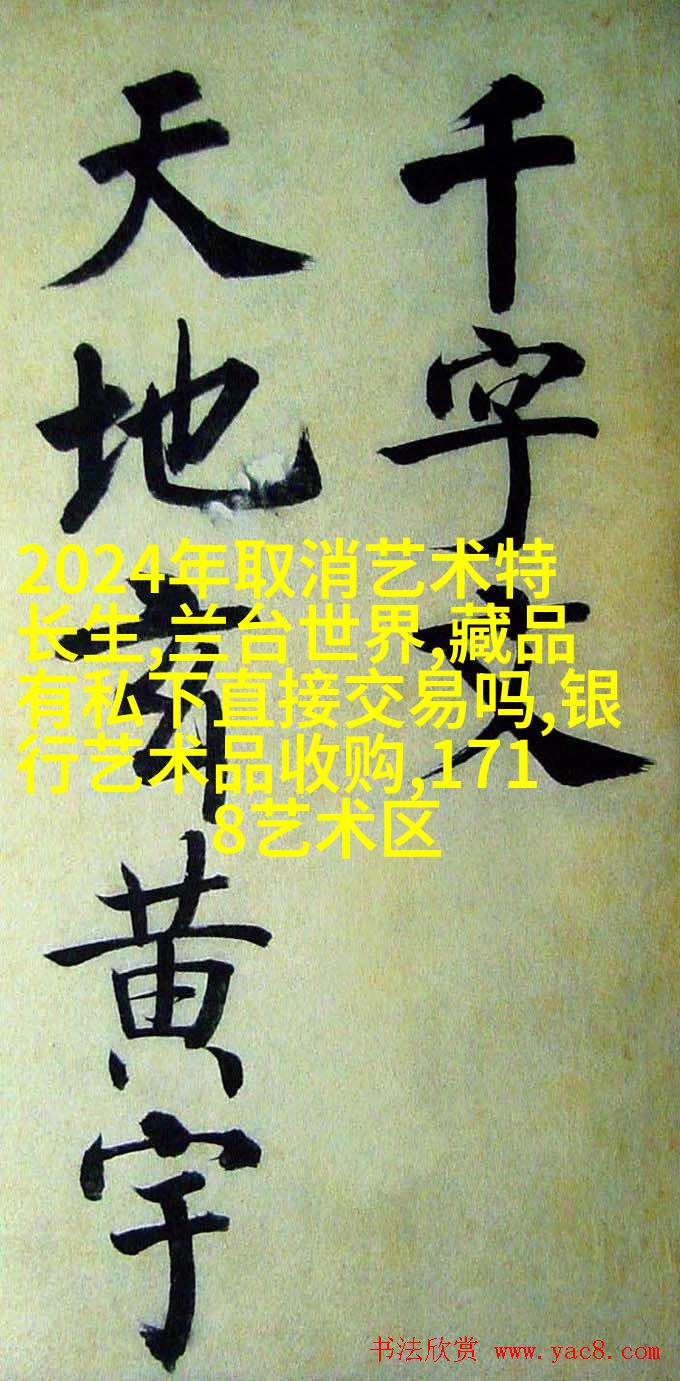 千字文
天地玄黄宇
2024年取消艺术特
长生,兰台世界,藏品
有私下直接交易吗,银
行艺术品收购,171
8艺术区
书法欣赏 www.yac8.com